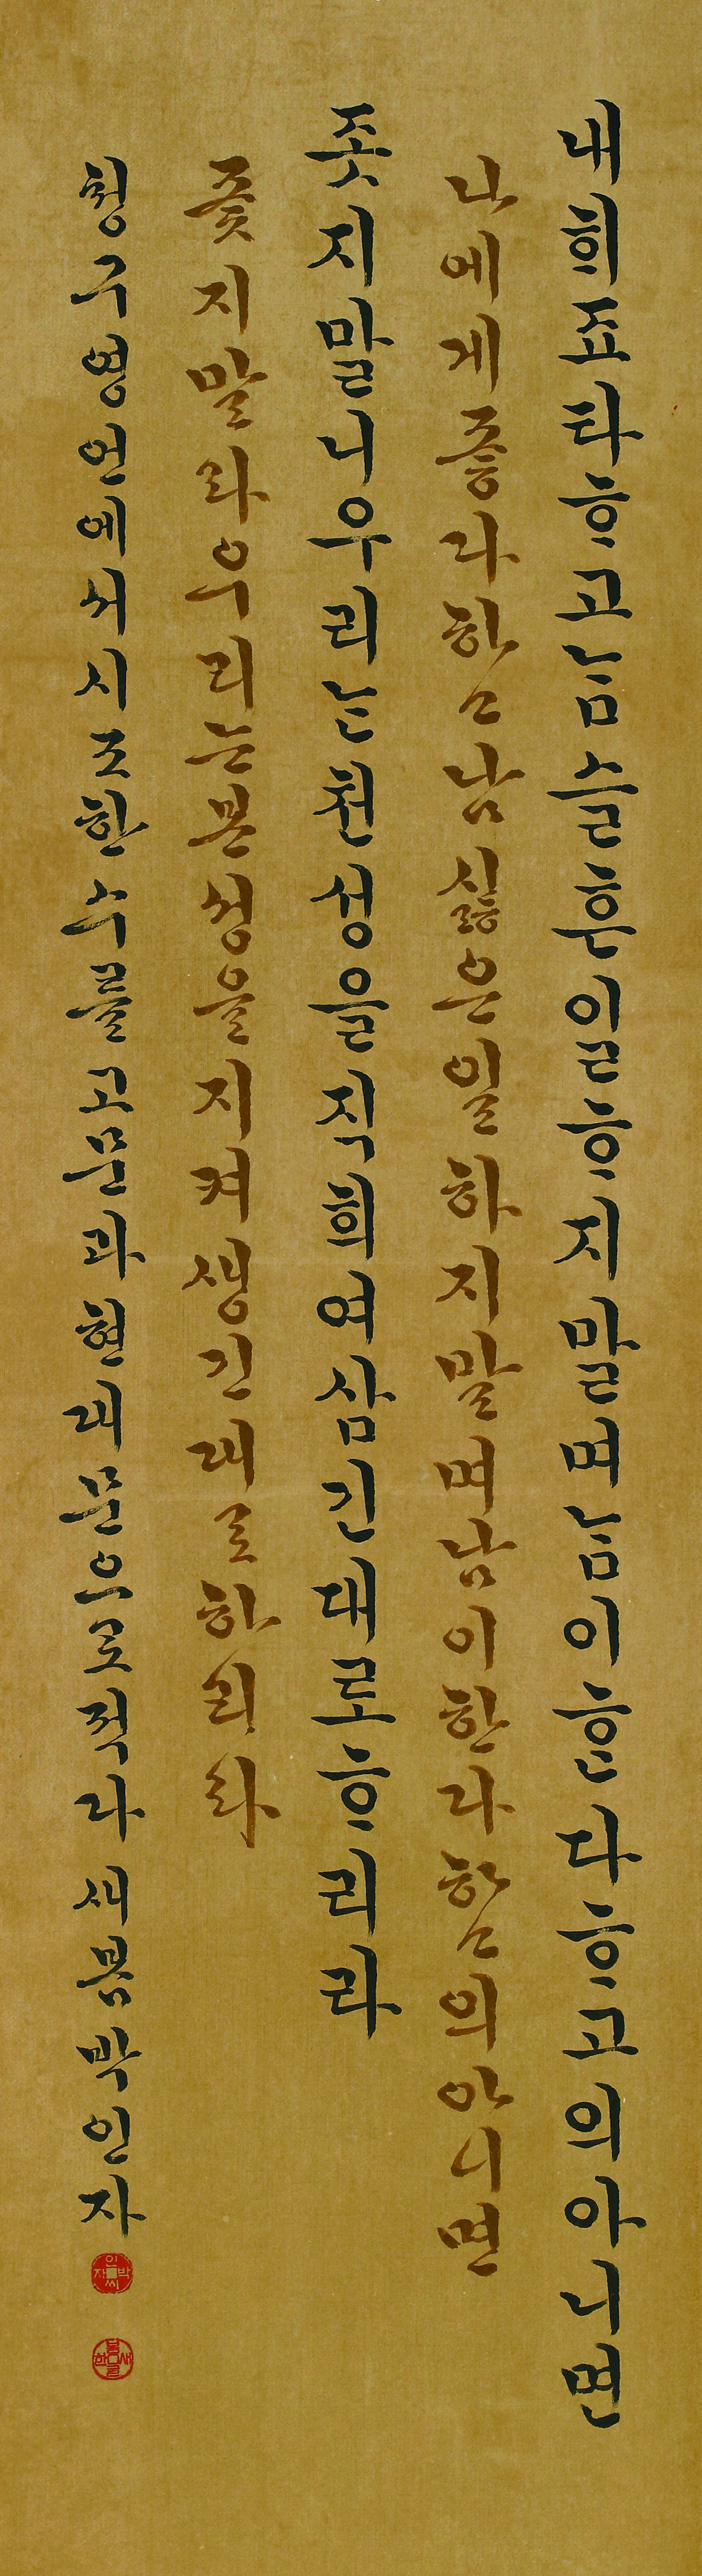 내희죠타ᄒᆞ고ᄂᆞᆷ슬흔일ᄒᆞ지말며ᄂᆞᆷ이ᄒᆞᆫ다ᄒᆞ고의아니면
나에게좋다함남싫은일하지말며남이한다함의아니면
좃지말니우리ᄂᆞᆫ천성을직희여삼긴대로ᄒᆞ리라
좇지말라우리는본성을지켜생긴대로하리라
청구영언에서시조한수를고문과현대문으로적다 새봄박인자
박인자씨
새봄한글